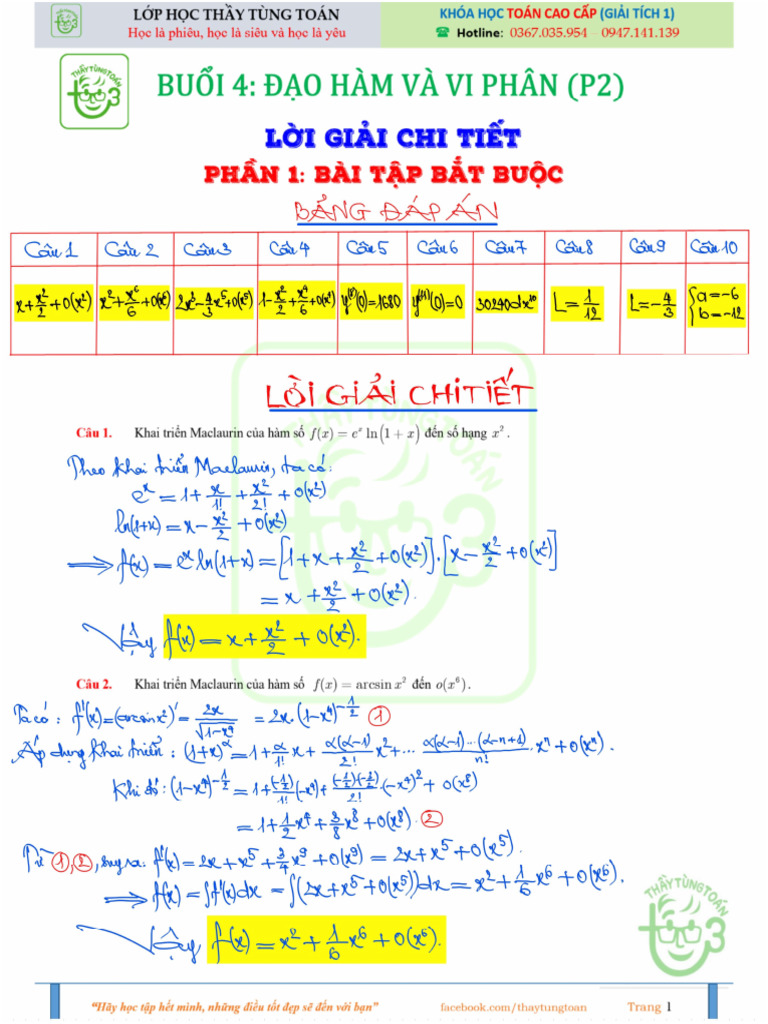 LỚP HỌC THẦY TÙNG TOÁN
Học là phiêu, học là siêu và học là yêu
KHÓA HỌC TOÁN CAO CẤP (GIẢI TÍCH 1)
☎ Hotline: 0367.035.954 – 0947.141.139
THẦYTÙNGTOÁN
BUỔI 4: ĐẠO HÀM VÀ VI PHÂN (P2)
LỜI GIẢI CHI TIẾT
PHẦN 1: BÀI TẬP BẮT BUỘC
BẢNG ĐÁP ÁN
Câu 1 Câu 2 Câu 3 Câu 4 Câu 5 Câu 6 Câu 7 Câu 8 Câu 9 Câu 10
x+x²/2+o(x²) x²+x⁶/6+o(x⁶) 2x³-4/3x⁵+o(x⁵) 1-x²/2+x⁴/6+o(x⁴) y⁽⁸⁾(0)=1680 y⁽¹¹⁾(0)=0 30240dx¹⁰ L=1/12 L=-4/3 {a=-6 b=-12
LỜI GIẢI CHI TIẾT
Câu 1. Khai triển Maclaurin của hàm số f(x) = eˣ ln(1 + x) đến số hạng x².
Theo khai triển Maclaurin, ta có:
eˣ = 1 + x/1! + x²/2! + o(x²)
ln(1+x) = x - x²/2 + o(x²)
⟹ f(x) = eˣ ln(1+x) = [1 + x + x²/2 + o(x²)].[x - x²/2 + o(x²)]
= x + x²/2 + o(x²).
Vậy f(x) = x + x²/2 + o(x²).
Câu 2. Khai triển Maclaurin của hàm số f(x) = arcsin x² đến o(x⁶).
Ta có: f'(x) = (arcsin x²)' = 2x/√(1-x⁴) = 2x.(1-x⁴)^(-1/2) ①
Áp dụng khai triển: (1+x)^α = 1 + α/1! x + α(α-1)/2! x² + ... α(α-1)...(α-n+1)/n! . xⁿ + o(xⁿ).
Khi đó: (1-x⁴)^(-1/2) = 1 + (-1/2)/1! (-x⁴) + (-1/2)(-1/2)/2! . (-x⁴)² + o(x⁸)
= 1 + 1/2 x⁴ + 3/8 x⁸ + o(x⁸). ②
Từ ①,②, suy ra: f'(x) = 2x + x⁵ + 3/4 x⁹ + o(x⁹) = 2x + x⁵ + o(x⁵).
⟹ f(x) = ∫f'(x)dx = ∫(2x + x⁵ + o(x⁵))dx = x² + 1/6 x⁶ + o(x⁶).
Vậy f(x) = x² + 1/6 x⁶ + o(x⁶).
THẦYTÙNGTOÁN
"Hãy học tập hết mình, những điều tốt đẹp sẽ đến với bạn" facebook.com/thaytungtoan Trang 1